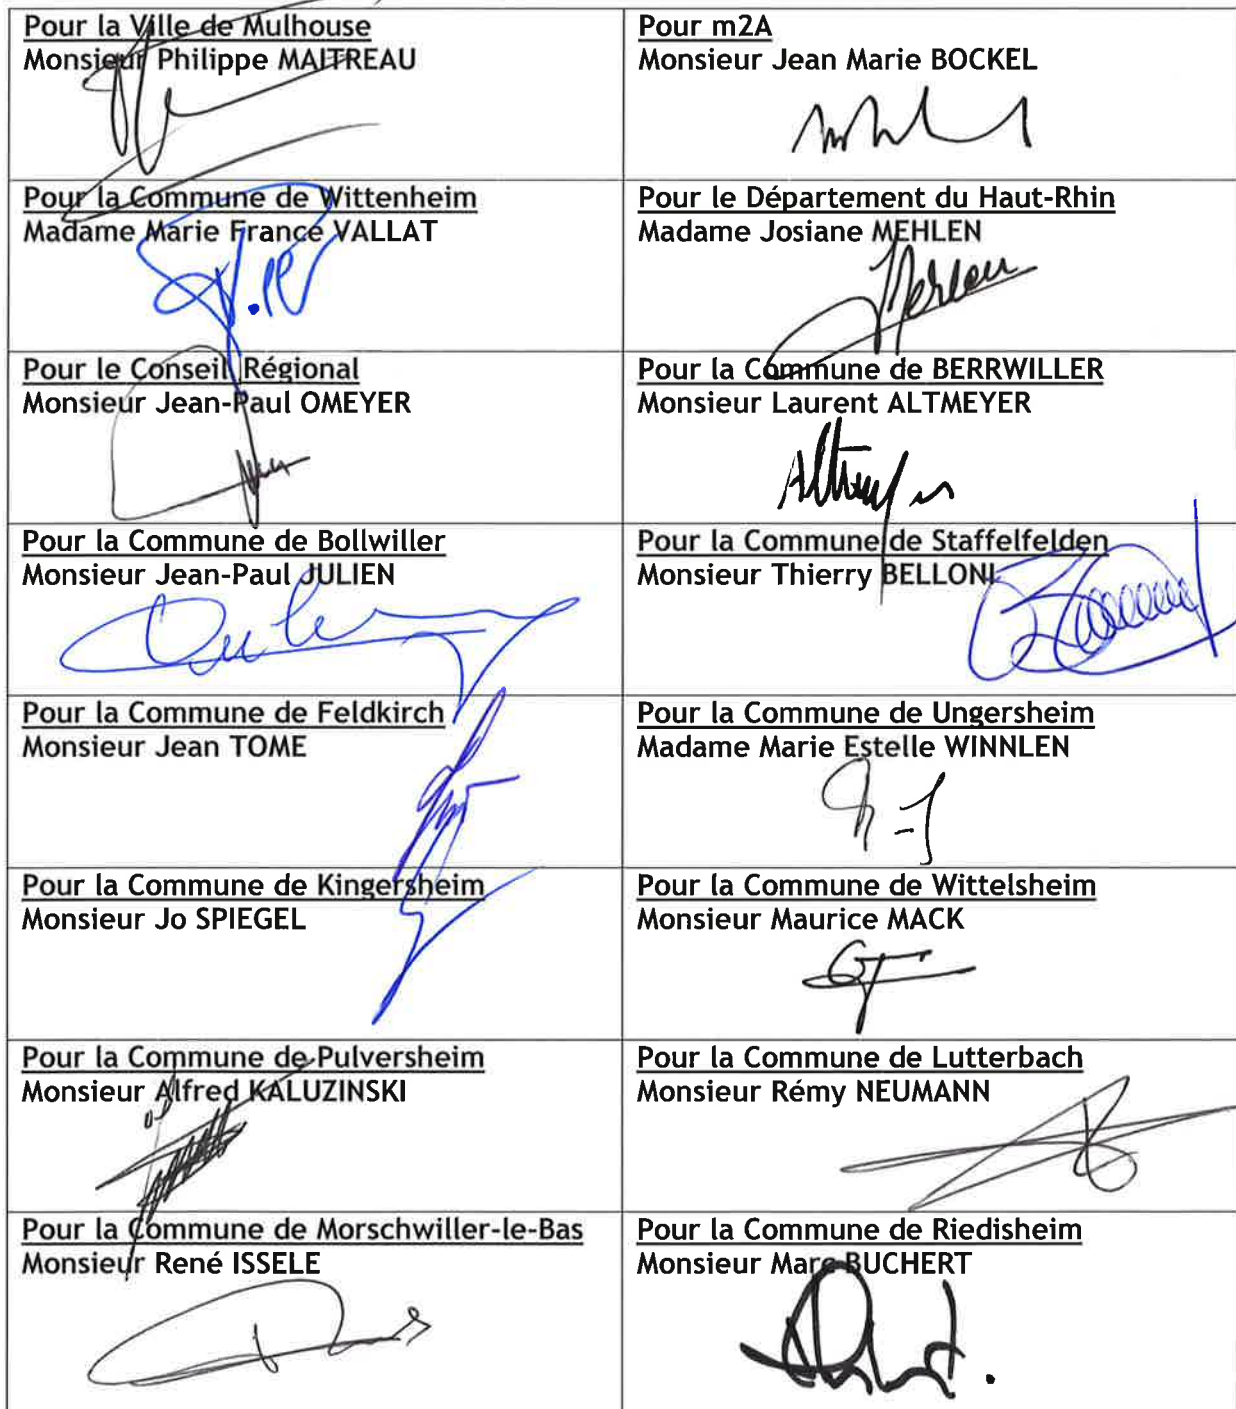 Pour la Ville de Mulhouse
Monsieur Philippe MAITREAU
Pour m2A
Monsieur Jean Marie BOCKEL
Pour la Commune de Wittenheim
Madame Marie France VALLAT
Pour le Département du Haut-Rhin
Madame Josiane MEHLEN
Pour le Conseil Régional
Monsieur Jean-Paul OMEYER
Pour la Commune de BERRWILLER
Monsieur Laurent ALTMEYER
Pour la Commune de Bollwiller
Monsieur Jean-Paul JULIEN
Pour la Commune de Staffelfelden
Monsieur Thierry BELLONI
Pour la Commune de Feldkirch
Monsieur Jean TOME
Pour la Commune de Ungersheim
Madame Marie Estelle WINNLEN
Pour la Commune de Kingersheim
Monsieur Jo SPIEGEL
Pour la Commune de Wittelsheim
Monsieur Maurice MACK
Pour la Commune de Pulversheim
Monsieur Alfred KALUZINSKI
Pour la Commune de Lutterbach
Monsieur Rémy NEUMANN
Pour la Commune de Morschwiller-le-Bas
Monsieur René ISSELE
Pour la Commune de Riedisheim
Monsieur Marc BUCHERT